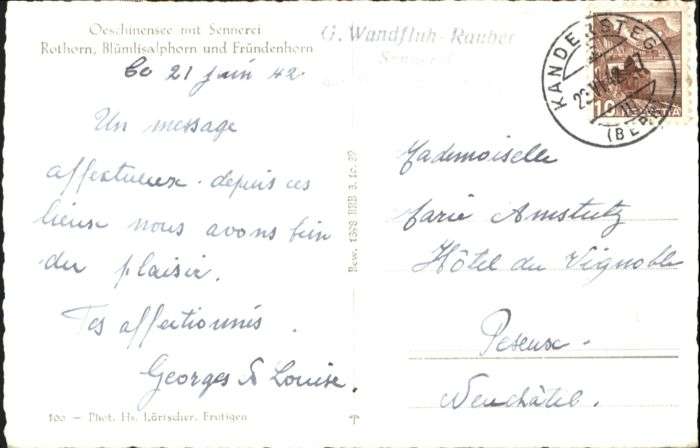 Oeschinensee mit Sennerei
Rothorn, Blümlisalphorn und Fründenhorn
G. Wandfluh-Rauber
Sennerei
Ce 21 juin 42
Un message
affectueux. depuis ces
lieux nous avons bien
du plaisir.
Tes affectionnés.
Georges & Louise.
100 – Phot. Hs. Lörtscher, Frutigen
Bew. 1398 BRB 3. 10. 39
KANDERSTEG
(BERN)
10
HELVETIA
Mademoiselle
Marie Amstutz
Hôtel du Vignoble
Peseux.
Neuchâtel.